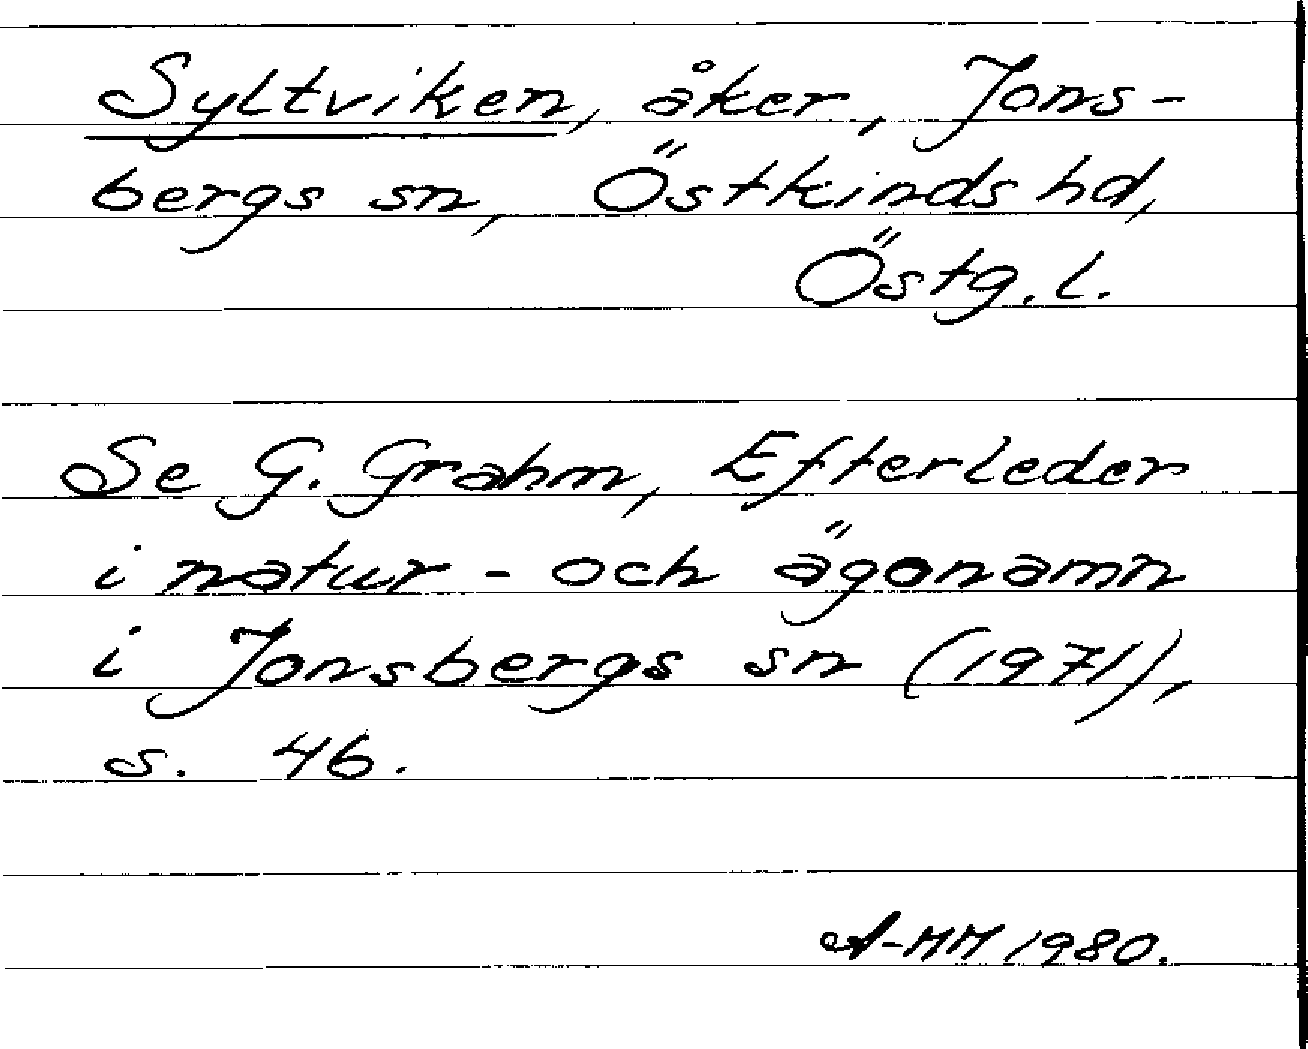 Syltviken, åker, Jons-
bergs sn, Östkinds hd,
Östg. l.
Se G. Grahm, Efterleder
i natur- och ägonamn
i Jonsbergs sn (1971),
s. 46.
A-MM 1980.